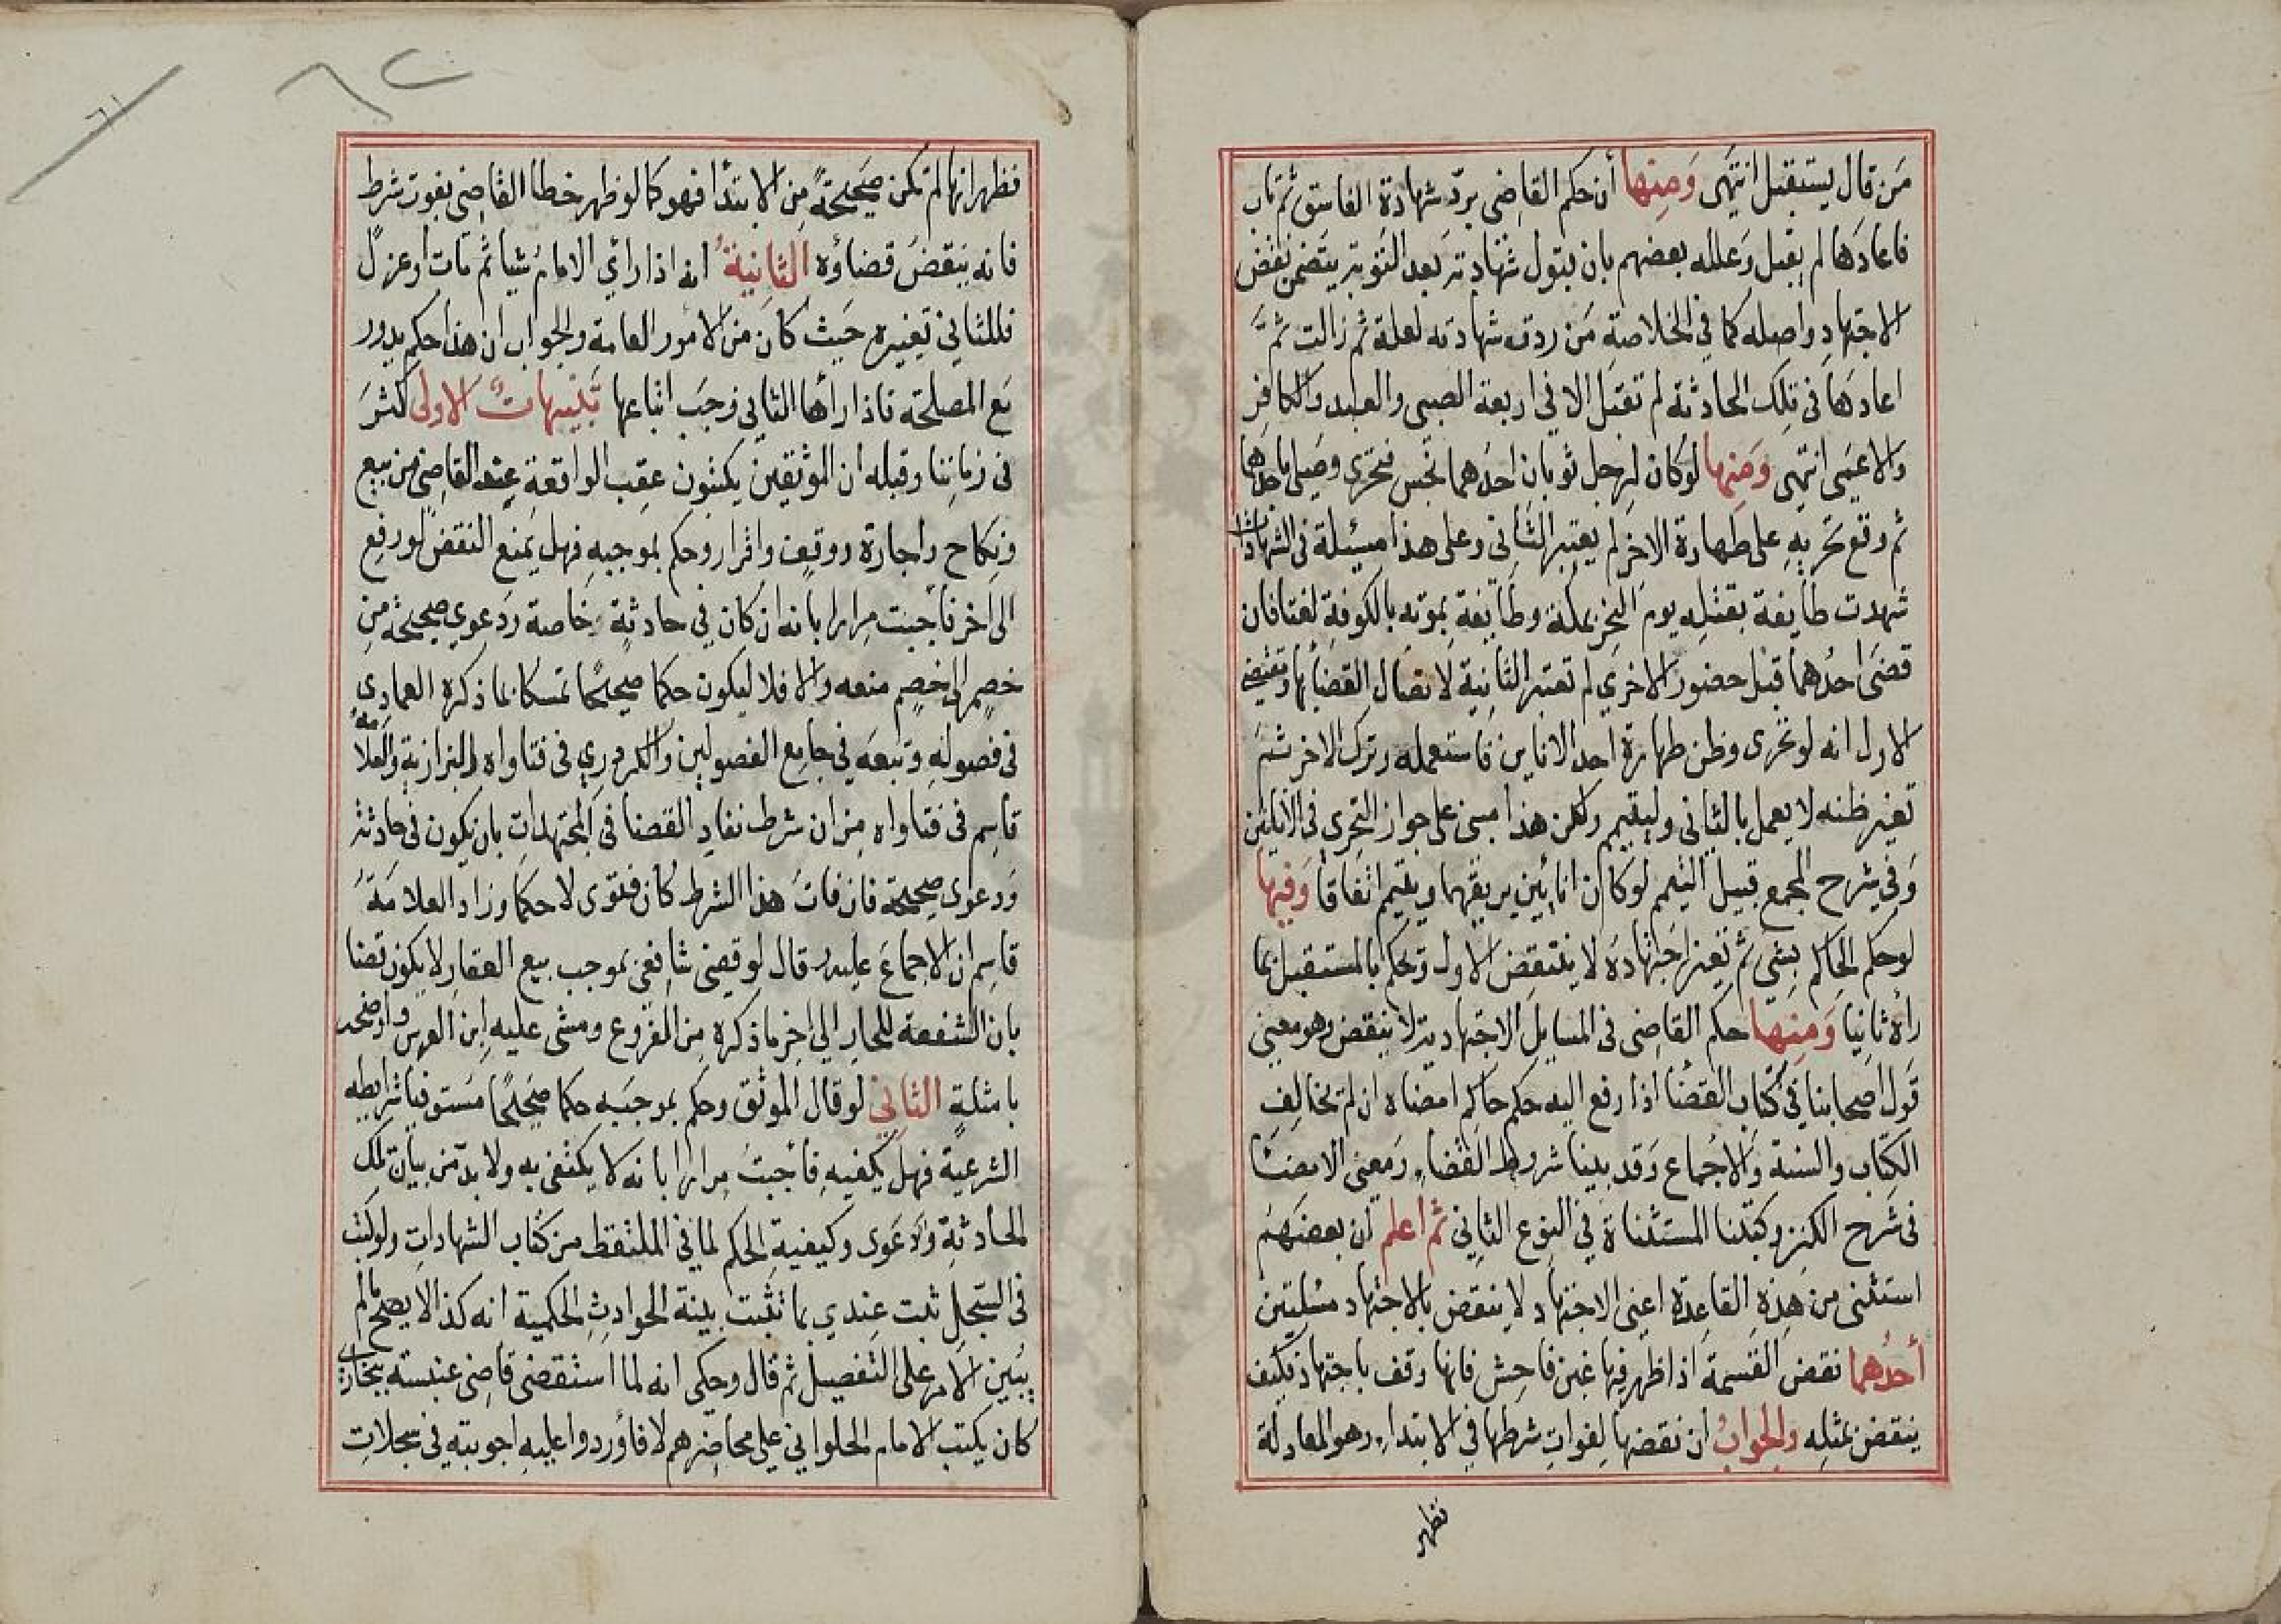 من قال يستقبل انتهى ومنها أن حكم القاضي برد شهادة الفاسق ثم تاب
فاعادها لم يقبل وعلله بعضهم بان قبول شهادته بعد التوبة يتضمن نقض
الاجتهاد واصله كما في الخلاصة من ردت شهادته لعلة ثم زالت ثم
اعادها في تلك الحادثة لم تقبل الا في اربعة الصبي والعبد والكافر
والاعمى انتهى ومنها لو كان لرجل ثوبان احدهما نجس فتحرى وصلى باحدهما
ثم وقع تحريه على طهارة الاخر لم يعتبر الثاني وعلى هذا مسئلة في الشهادات
شهدت طايفة بقتله يوم النحر بمكة وطايفة بموته بالكوفة لغتا فان
قضى احدهما قبل حضور الاخرى لم تعتبر الثانية لاتصال القضا بها ومقتضى
الاول انه لو تحرى وظن طهارة احد الانابين فاستعمله وترك الاخر ثم
تغير ظنه لا يعمل بالثاني وليقيم ولكن هذا مبنى على جواز التحرى في الانايين
وفي شرح المجمع قبيل التيمم لو كان انائين يريقهما ويتيمم اتفاقا وفيها
لو حكم الحاكم بشي ثم تغير اجتهاده لا ينتقض الاول وتحكم بالمستقبل بما
رأه ثانيا ومنها حكم القاضي في المسايل الاجتهادية لا ينقض وهو معنى
قول اصحابنا في كتاب القضا اذا رفع اليه حكم حاكم امضاه ان لم يخالف
الكتاب والسنة والاجماع وقد بينا شروط القضاء ومعنى الامضا
في شرح الكنز وكتبنا المستثناة في النوع الثاني ثم اعلم ان بعضهم
استثنى من هذه القاعدة اعنى الاجتهاد لا ينقض بالاجتهاد مسئلتين
أحدهما نقض القسمة اذا ظهر فيها غبن فاحش فانها وقف باجتهاد فكيف
ينقض بمثله والجواب أن نقضها لفوات شرطها في الابتداء وهو المعادلة
فظهر
فظهر انها لم تكن صحيحة من الابتدا فهو كما لو ظهر خطا القاضي بفوت شرط
فانه ينقض قضاؤه الثانية انه اذا رأي الامام شيا ثم مات أو عزل
فللثاني تغييره حيث كان من الامور العامة والجواب ان هذا حكم يدور
مع المصلحة فاذا رأها الثاني وجب اتباعها تنبيهات الاولى كثر
في زماننا وقبله ان الموثقين يكتبون عقب الواقعة عند القاضي من بيع
ونكاح واجارة ووقف واقرار وحكم بموجبه فهل يمنع النقض لو رفع
الى اخر فأجبت مرارا بانه ان كان في حادثة خاصة ودعوي صحيحة من
خصم الى خصم منعه والا فلا ليكون حكما صحيحا تمسكا بما ذكره العمادي
في فصوله وتبعه في جامع الفصولين والكردري في فتاواه والبزازية والعلامة
قاسم في فتاواه من ان شرط نفاد القضا في المجتهدات بان يكون في حادثة
ودعوى صحيحة فان فات هذا الشرط كان فتوى لا حكما وزاد العلامة
قاسم ان الاجماع عليه وقال لو قضى شافعي بموجب بيع العقار لا يكون قضا
بان الشفعة للجار الي اخر ما ذكره من الفروع ومشى عليه ابن الغرس واوضحه
بامثلة الثاني لو قال الموثق وحكم بموجبه حكما صحيحا مستوفيا شرايطه
الشرعية فهل يكفيه فأجبت مرارا بانه لا يكتفى به ولا بد من بيان تلك
الحادثة والدعوى وكيفية الحكم لما في الملتقط من كتاب الشهادات ولو كتب
في السجل ثبت عندي بما تثبت بينة الحوادث الحكمية انه كذا لا يصح مالم
يبين الامر على التفصيل ثم قال وحكى انه لما استقضى قاضى عنبسته ببخارى
كان يكتب الامام الحلواني على محاضرهم لا فأوردوا عليه اجوبته في سجلات